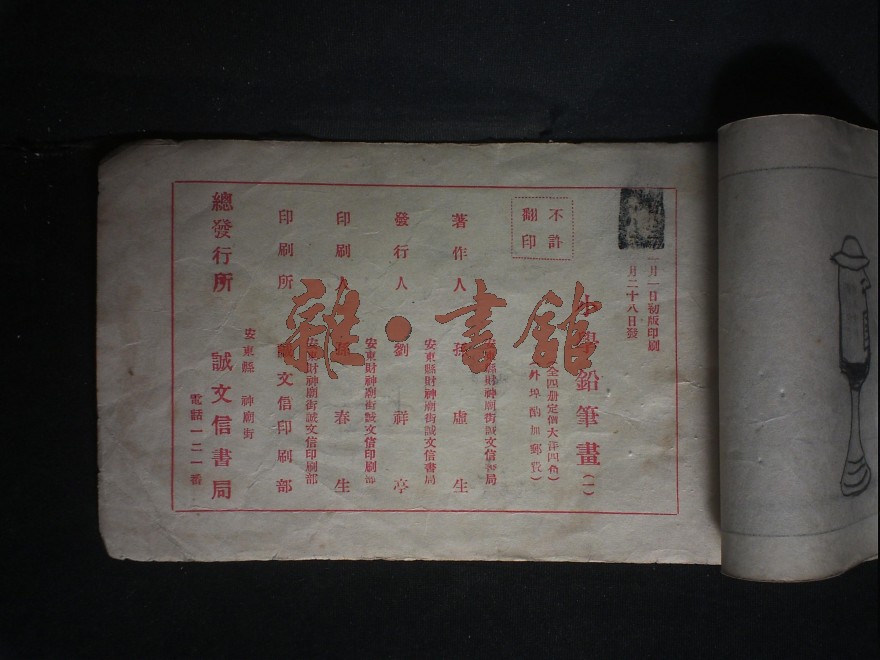 月一日初版印刷
月二十八日發
不許
翻印
小學鉛筆畫（一）
全四册定價大洋四角
（外埠酌加郵費）
安東縣財神廟街誠文信書局
著作人 孫虛生
安東縣財神廟街誠文信書局
發行人 劉祥亭
安東財神廟街誠文信印刷部
印刷人 孫春生
安東財神廟街誠文信印刷部
印刷所 誠文信印刷部
安東縣 神廟街
總發行所 誠文信書局
電話一二一番
雜·書館